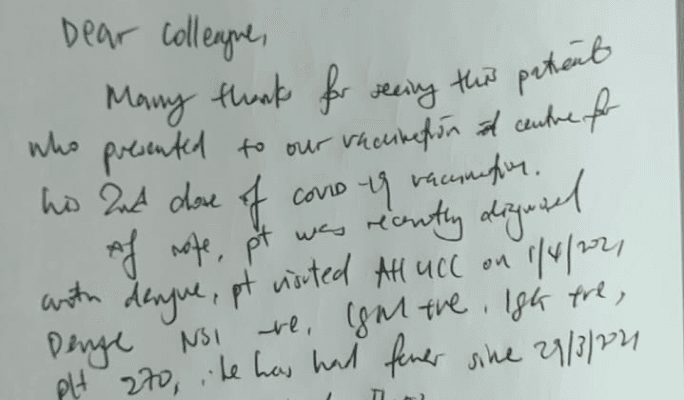 Dear Colleague,
Many thanks for seeing this patient
who presented to our vaccination centre for
his 2nd dose of COVID-19 vaccination.
Of note, pt was recently diagnosed
with dengue, pt visited AH UCC on 1/4/2021
Denge NS1 -ve, IgM +ve, IgG +ve,
plt 270, he has had fever since 29/3/2021